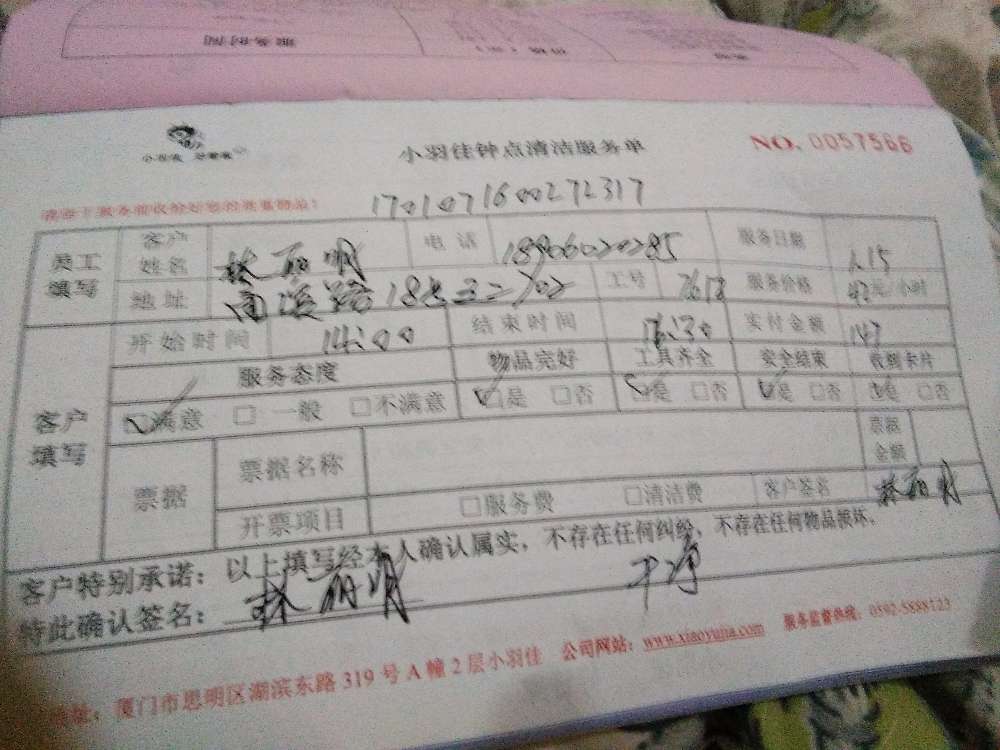 小羽佳钟点清洁服务单 NO. 0057566
1701071600272317
员工填写 客户姓名 林丽明 电话 18906020285 服务日期 1.15
地址 工号 7618 服务价格 42元/小时
客户填写 开始时间 14:00 结束时间 实付金额 147
服务态度 物品完好 工具齐全 安全结束 收到卡片
满意 □ 一般 □不满意 是 □否 是 □否 是 □否 是 □否
票据 票据名称 票据金额
开票项目 □服务费 □清洁费 客户签名 林丽明
客户特别承诺：以上填写经本人确认属实，不存在任何纠纷，不存在任何物品损坏。
特此确认签名： 林丽明 干净
地址：厦门市思明区湖滨东路319号A幢2层小羽佳 公司网站：www.xiaoyujia.com 服务监督热线：0592-5888123